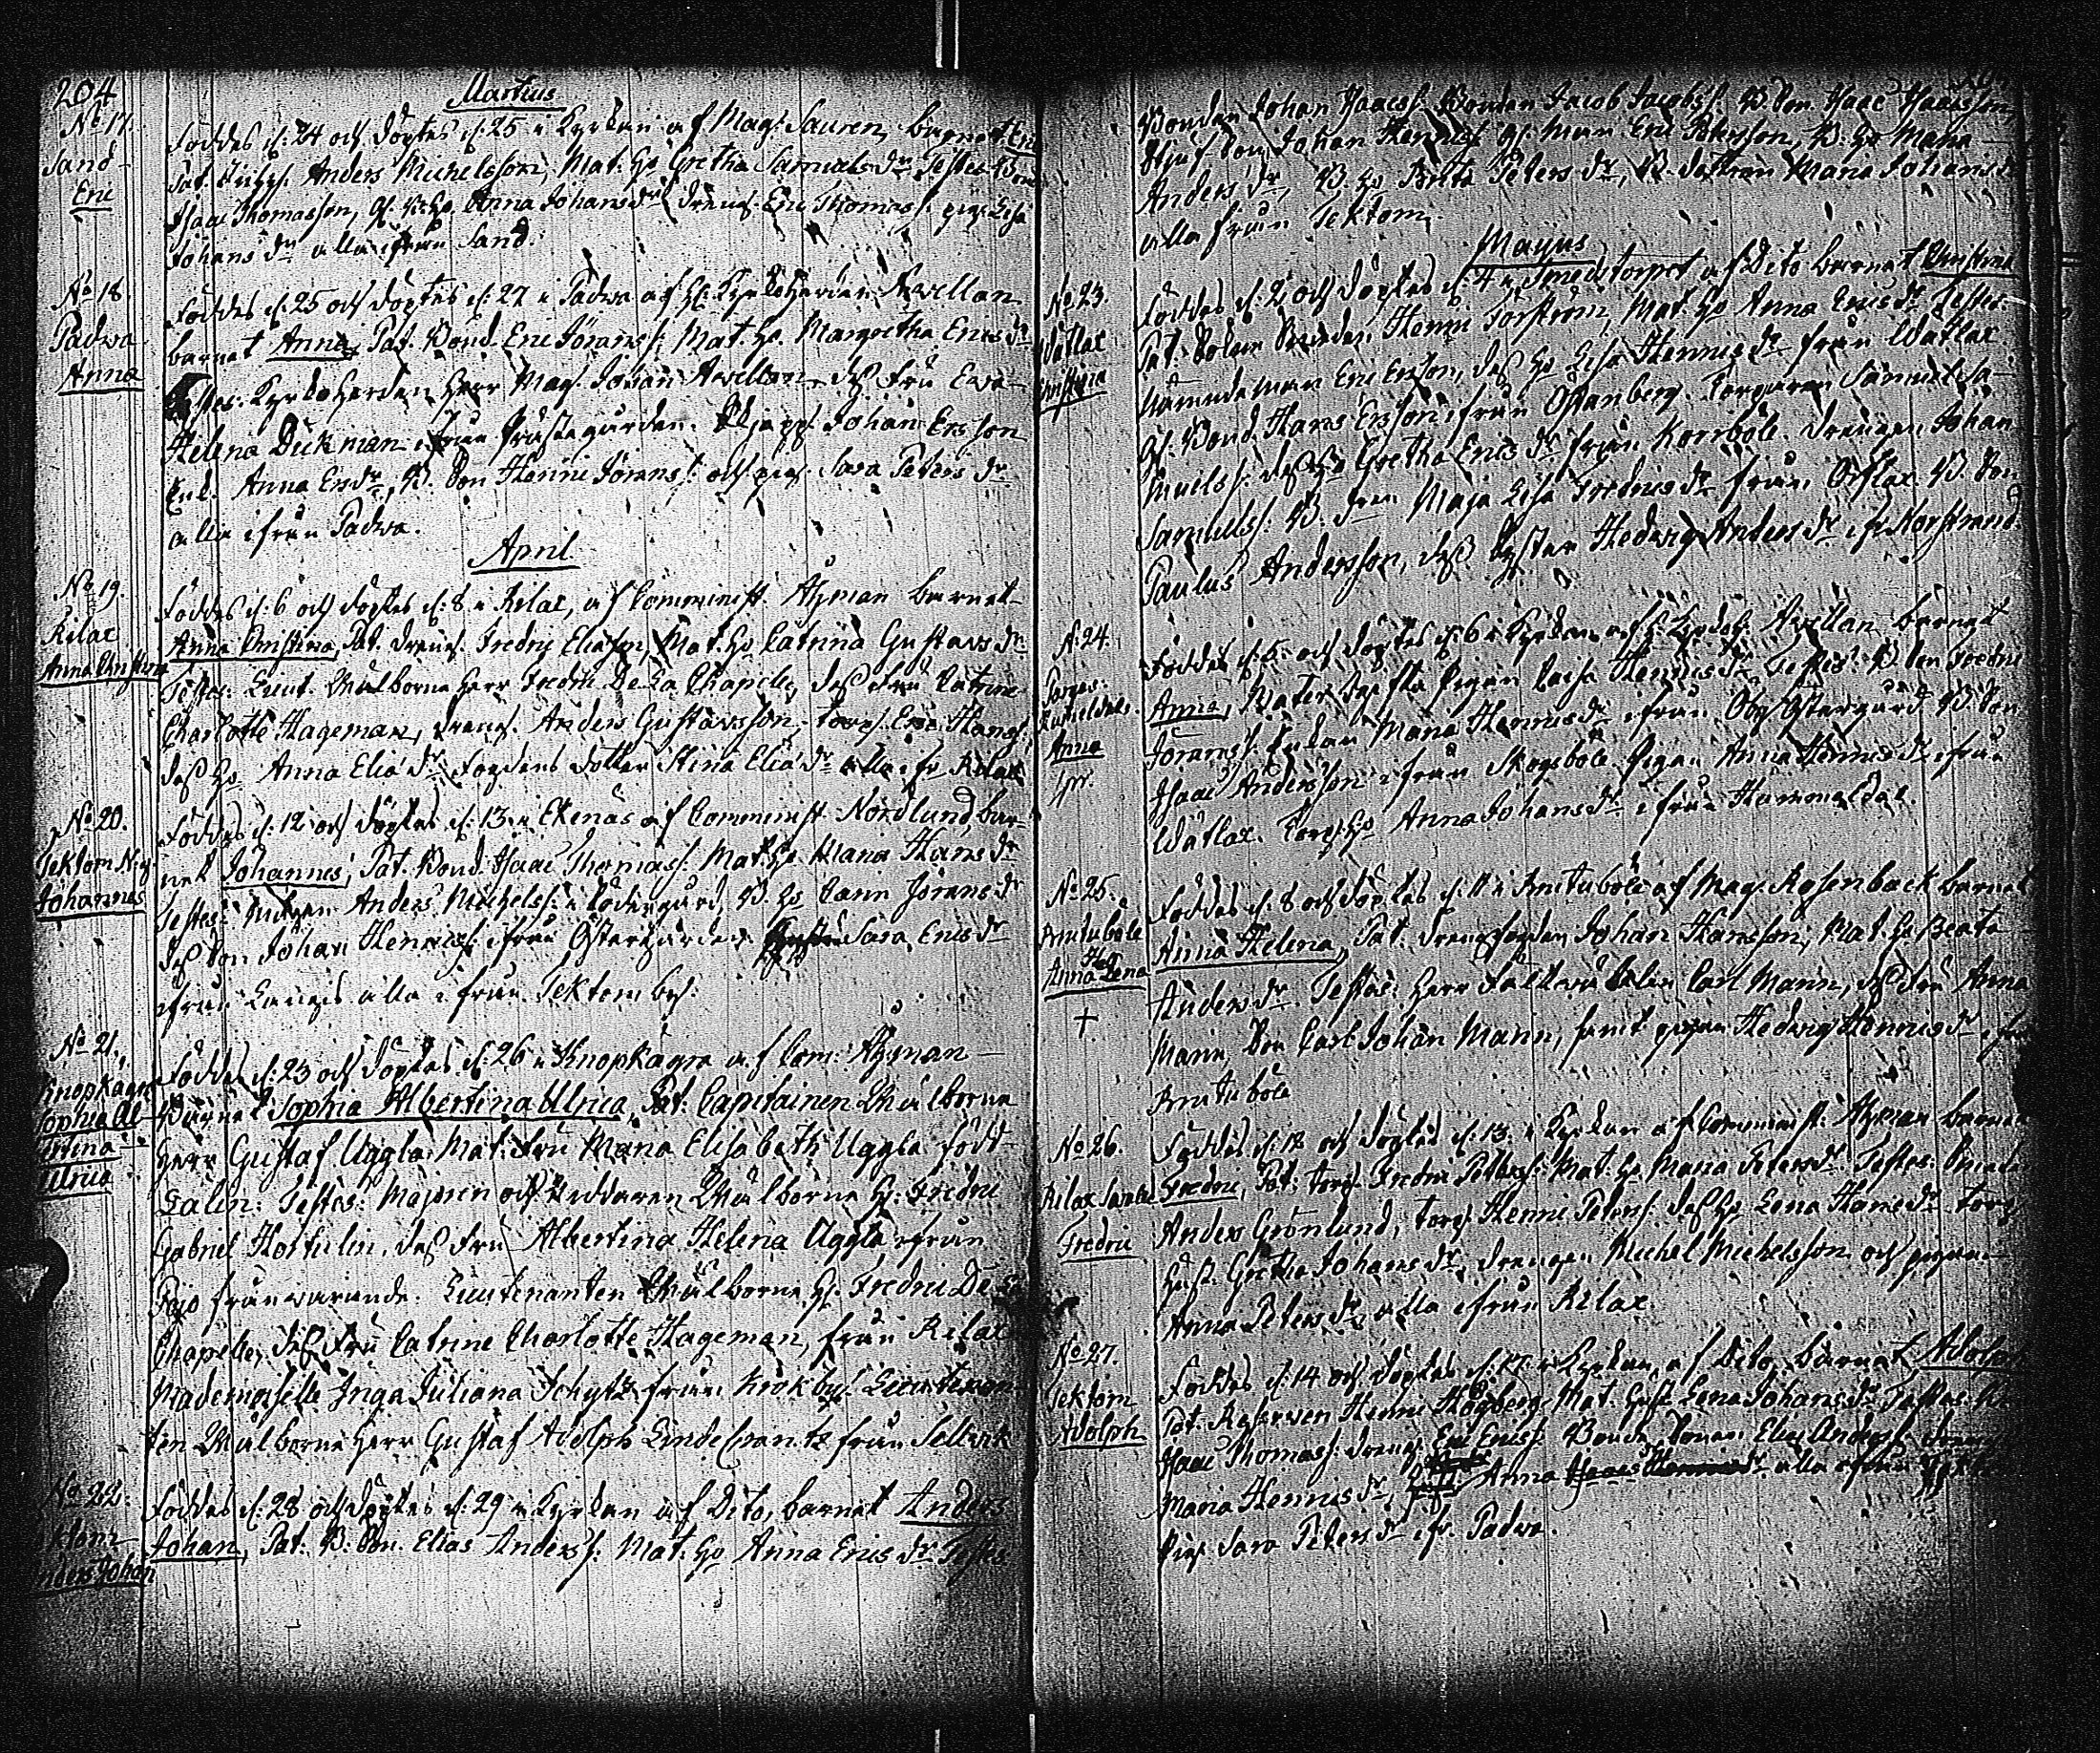 204
Martius
No 17.
Sand
Eric
Föddes d: 24 och döptes d: 25 i Kyrkan af Mag: Sauren, barnet Eric
Pat. Anders Michelsson, Mat. Ho Gretha Samuels dr Testes
Isaac Thomasson, Anna Johans dr dreng. Eric Thomass. pig. Lisa
Johans dr alla ifrån Sand.
No 18.
Padwa
Anna
Föddes d: 25 och döptes d: 27 i Padwa af H: Kyrkoherden Avellan
barnet Anna, Pat. Bond. Eric Jöranss: Mat. Ho. Margretha Erics dr
Testes: Kyrkoherden Herr Mag. Johan Avellan, dess Fru Eva
Helena Dickman ifrån Prästegården. Johan Ersson
Enk. Anna Ersdr, B. Son Henric Jöranss: och pig. Sara Peters dr
alla ifrån Padwa.
April
No 19.
Rilax
Anna Christina
Föddes d: 6 och döptes d: 8 i Rilax, af Comminist. Åhman barnet
Anna Christina, Pat. dreng. Fredric Eliasson, Mat. Ho Catrina Gustavs dr
Testes: Lieut. Wälborne Herr Fredric De La Chapelle, dess Fru Catrine
Charlotte Hageman, dreng. Anders Gustavsson, torp. Eric Hanss:
dess Ho Anna Elia dr, dotter Stina Elia dr alla ifr. Rilax
No 20.
Tektom Nyg.
Johannes
Föddes d: 12 och döptes d: 13 i Ekenäs af Comminist. Nordlund bar-
net Johannes, Pat. Bond. Isaac Thomass: Mat. Ho Maria Hans dr
Testes: Anders Michelss: i Södergård, B. Ho Carin Jörans dr
dess Son Johan Henricss: ifrån Östergården Sara Erics dr
ifrån alla ifrån Tektom by.
No 21.
Knopkägra
Sophia Al-
bertina
Ulrica
Föddes d: 23 och döptes d: 26 i Knopkägra af Com: Åhman
Barnet Sophia Albertina Ulrica, Pat: Capitainen Wälborne
Herr Gustaf Uggla, Mat: Fru Maria Elisabeth Uggla född
Salin: Testes: Majoren och Riddaren Wälborne H: Fredric
Gabriel Hertulin, dess Fru Albertina Helena Uggla, ifrån
Pojo frånvarande. Lieutenanten Wälborne H: Fredric De La
Chapelle, dess Fru Catrine Charlotte Hageman, från Rilax
Mademoiselle Inga Juliana Schytz från Krokby. Lieutenan-
ten Wälborne Herr Gustaf Adolph Lindecrantz från Sellvik
No 22.
Tektom
Anders Johan
Föddes d: 28 och döptes d: 29 i Kyrkan af Dito, barnet Anders
Johan, Pat: B: Son. Elias Anderss: Mat: Ho Anna Erics dr Testes
Bonden Johan Isacss: Bonden Jacob Jacobss: B. Son Isaac Isacsson,
Johan Henricss: gl: Man Eric Petersson, B. Ho Maria
Anders dr, B. Ho Brita Peters dr, B. dottren Maria Johans dr
alla ifrån Tektom.
Mayus
No 23.
Wätlax
Christina
Föddes d: 2 och döptes d: 4 i Smedstorpet af Dito barnet Christina
Pat. Henric Torström, Mat. Ho Anna Erics dr Testes:
Nämndeman Eric Ersson, dess Ho Lisa Henrics dr från Wätlax
Bond. Hans Ersson ifrån Östanberg. Torparen Samuel Sa-
muelss: dess Ho Gretha Erics dr från Korsböle. drengen Johan
Samuelss: B. Maja Lisa Fredrics dr från Ötlax B. Son
Paulus Andersson, dess Syster Hedwig Anders dr ifr. Norstrand.
No 24.
Anna
Föddes d: 5 och döptes d: 6 i Kyrkan af H: Kyrkoh: Avellan barnet
Anna, Moder Pigan Caisa Henrics dr, Testes: B. Son Fredric
Jöranss: Enkan Maria Henrics dr ifrån Östergård B. Son
Isaac Andersson ifrån Skogsböle. Pigan Anna Henrics dr ifrån
Wätlax. Torp. Ho Anna Johans dr ifrån Hammeldal.
No 25.
Brutuböle
Anna Lena
+
Föddes d: 8 och döptes d: 11 i Brutuböle af Mag. Rosenback barnet
Anna Helena, Pat. Johan Hansson, Mat. Ho Beata
Anders dr. Testes: Herr Carl Mann, dess Fru Anna
Mann, Son Carl Johan Mann, samt pigan Hedwig Henrics dr ifr.
Brutuböle
No 26.
Rilax
Fredric
Föddes d: 12 och döptes d: 13 i Kyrkan af Comminist: Åhman barnet
Fredric, Pat: torp. Fredric Mat. Ho Maria Peters dr. Testes:
Anders Grönlund, torp. Henric Peterss: dess Ho Lena Hans dr torp.
Hust. Gretha Johans dr, drengen Michel Michelsson och pigan
Anna Peters dr alla ifrån Rilax.
No 27.
Tektom
Adolph
Föddes d: 14 och döptes d: 17 i Kyrkan af Dito, barnet Adolph
Pat. Henric Högberg, Mat. Hust. Lena Johans dr Testes:
Isaac Thomass: dreng. Eric Ericss: Bonde Sonen Elias Anderss:
Maria Henrics dr, Anna alla ifrån
Pig. Sara Peters dr ifr. Padwa.